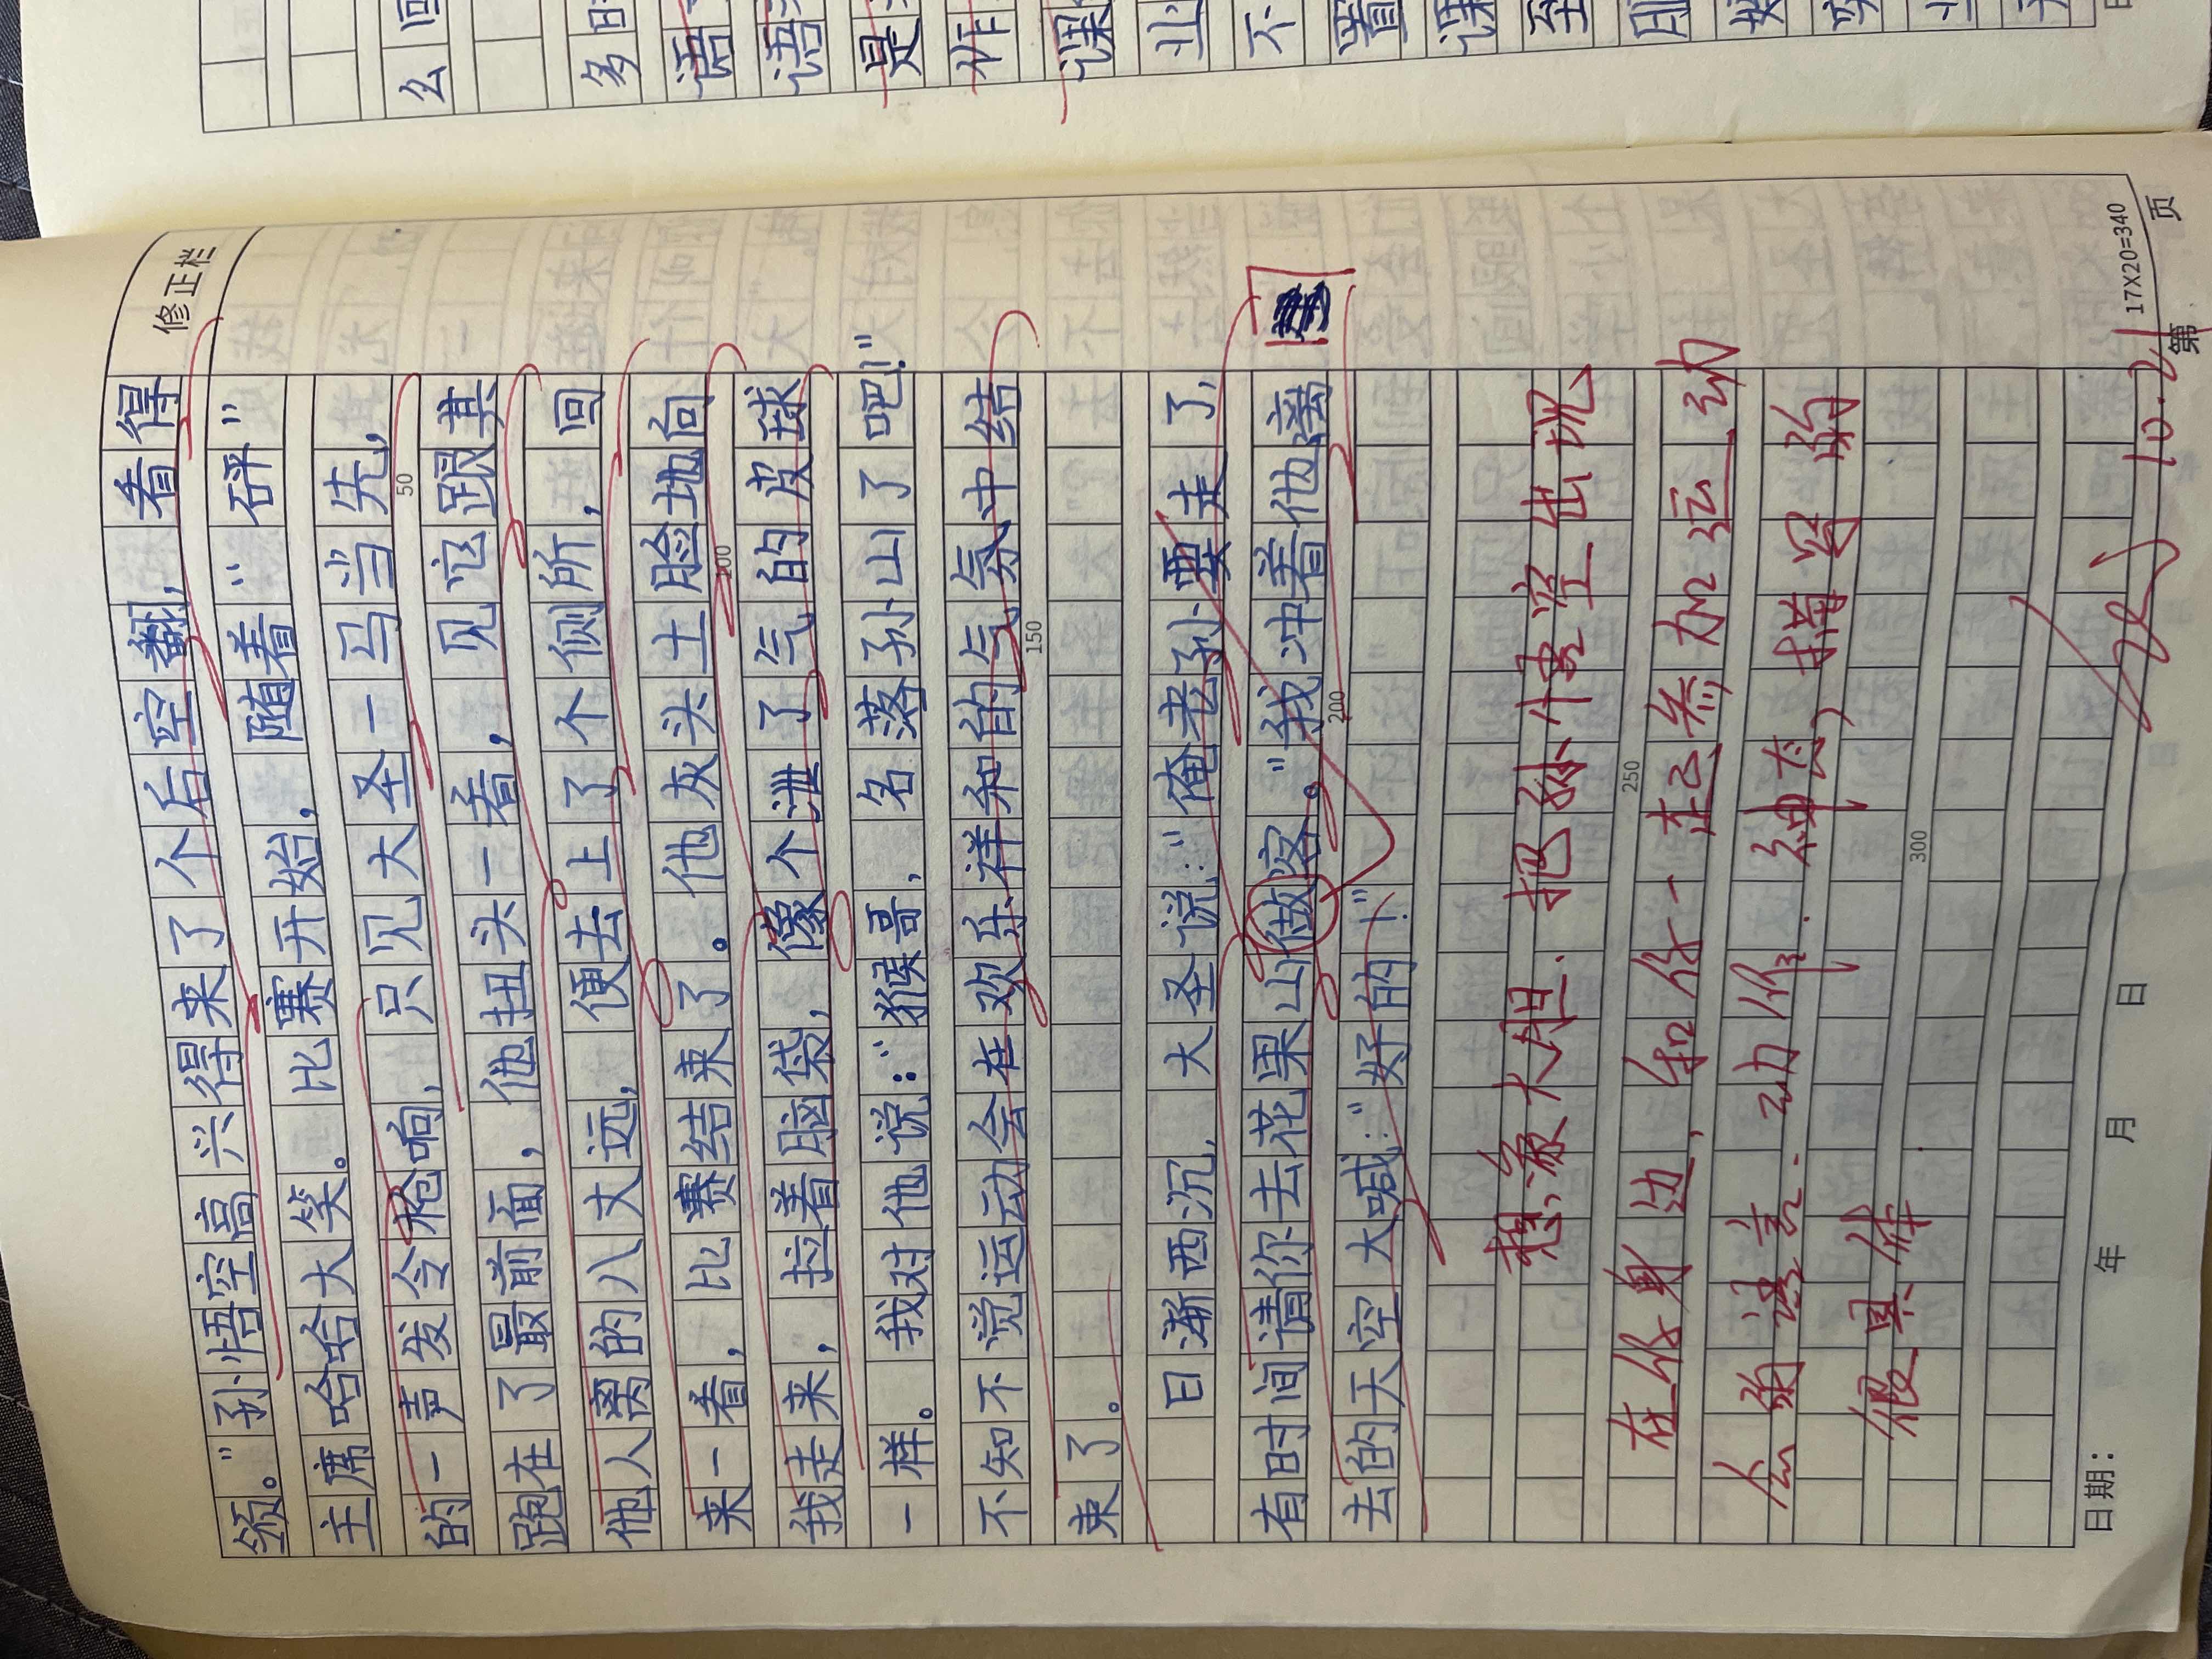 么回
多日
语
语
是
作
课
业
不
着
课
至
修正栏
领。"孙悟空高兴得来了个后空翻,看得
主席哈哈大笑。比赛开始,随着"砰"
的一声发令枪响,只见大圣一马当先,
50
跑在了最前面,他扭头一看,见它跟其
他人离的八丈远,便去上了个侧所,回
来一看,比赛结束了。他灰头土脸地向
100
我走来,拉着脑袋,像个泄了气的皮球
一样。我对他说:"猴哥,名落孙山了吧!"
不知不觉运动会在欢乐祥和的气氛中结
150
束了。
日渐西沉,大圣说:"俺老孙要走了,
有时间请你去花果山做客。"我冲着他离
200
去的天空大喊:"好的!"
想象大胆.把孙悟空出现
在你身边,和你一起参加运动
250
会的语言.动作.神态,描写的
很具体
300
17X20=340
日期: 年 月 日
第 页
10.21